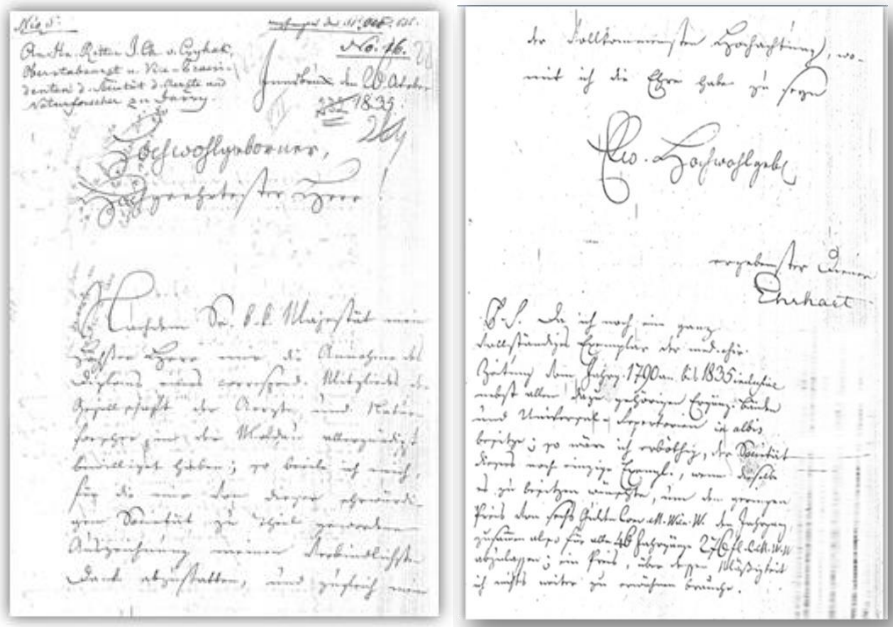 No. 16.
An Hn. Ritter J. Ch. v. Czykak,
Oberstabsarzt u. Vice-Praesi-
denten d. Societät d. Aerzte und
Naturforscher zu Jassy.
Innsbruck den 20 October
1835
Hochwohlgeborner,
Hochgeehrtester Herr!
Nachdem Se. k. k. Majestät mein
Höchster Herr mir die Annahme des
Diploms eines correspond. Mitgliedes der
Gesellschaft der Aerzte und Natur
forscher in der Moldau allergnädigst
bewilliget haben; so beeile ich mich,
für die mir von dieser ehrwürdi
gen Societät zu Theil gewordene
Auszeichnung meinen verbindlichsten
Dank abzustatten, und zugleich
der vollkommensten Hochachtung, wo-
mit ich die Ehre habe zu seyn
Ew. Hochwohlgeb.
ergebenster Diener
Ehrhart
P.S. Da ich noch ein ganz
vollständiges Exemplar der med. chir.
Zeitung vom Jahrg. 1790 an bis 1835 inclusive
nebst allen dazu gehörigen Ergänz. Bänden
und Universal-Repertorien in albis
besitze; so wäre ich erböthig, der Societät
dieses noch einzige Exempl., wenn dieselbe
es zu besitzen wünschte, um den geringen
Preis von sechs Gulden Conv. M. W. W. den Jahrgang
zusammen also für alle 46 Jahrgänge 276 fl. C. M. W. W.
abzulassen; ein Preis, über dessen Mäßigkeit
ich nichts weiter zu erwähnen brauche.